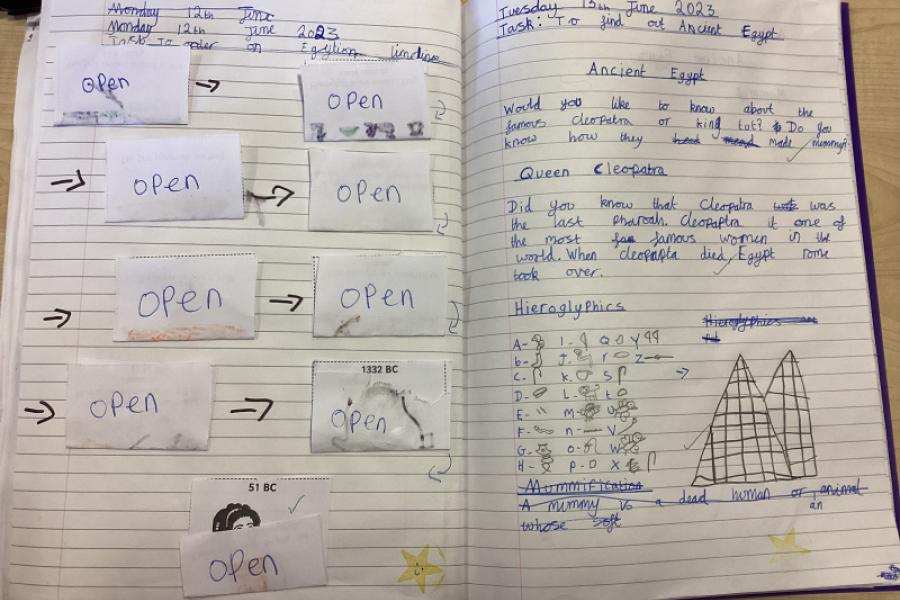 Monday 12th June
Monday 12th June 2023
Task: To order an Egytion timline
Open
Open
Open
Open
Open
Open
Open
1332 BC
Open
51 BC
Open
Tuesday 13th June 2023
Task: To find out Ancient Egypt
Ancient Egypt
Would you like to know about the
famous Cleopatra or king tut? Do you
know how they made mummy?
Queen Cleopatra
Did you know that Cleopatra was
the last pharoah. Cleopaptra it one of
the most famous women in the
world. When cleopapta died, Egypt rome
took over.
Hieroglyphics
Hieroglyphics
A- I- Q Y
b- J- r Z-
C- K- S
D- L- t
E- M- U
F- n- V
G- O- W
H- P- X
Mummification
A mummy is a dead human or animal
an
whose soft